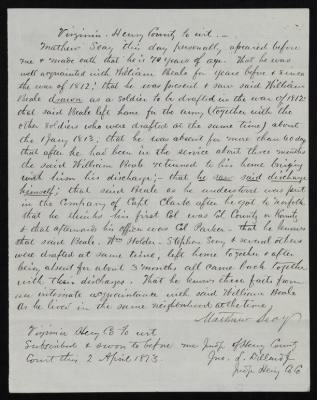 Virginia - Henry County to wit -
Mathew Seay this day personally apeared before
me & made oath that he is 78 years of age. That he was
well acquainted with William Beale for years before & since
the war of 1812; that he was present & saw said William
Beale drawn as a soldier to be drafted in the war of 1812
that said Beale left home for the army (together with the
other soldiers who were drafted at the same time) about
the 1 Jany 1813; that he was absent for more than 60 days
that after he had been in the service about three months
the said William Beale returned to his home bringing
with him his discharge; that he saw said discharge
himself; that said Beale as he understood was put
in the Company of Capt Clarke after he got to Norfolk
that he thinks his first Col was Col
& that afterwards his officer was Col Parker. that he knows
that said Beale, Wm Holder, Stephen Seay & several others
were drafted at same time, left home together & after
being absent for about 3 months all came back together
with their discharges. That he knows these facts from
an intimate acquaintance with said William Beale
as he lived in the same neighborhood at the time.
Mathew Seay
Virginia Henry Co to wit
Subscribed & sworn to before me Judge of Henry County
Court this 2 April 1873
Jno. L. Dillard
Judge Henry Co